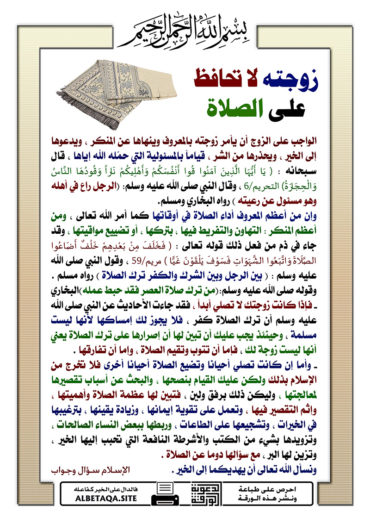 بسم الله الرحمن الرحيم
زوجته لا تحافظ
على الصلاة
الواجب على الزوج أن يأمر زوجته بالمعروف وينهاها عن المنكر ، ويدعوها
إلى الخير ، ويحذرها من الشر ، قياماً بالمسئولية التي حمله الله إياها ، قال
سبحانه : ( يَا أَيُّهَا الَّذِينَ آمَنُوا قُوا أَنْفُسَكُمْ وَأَهْلِيكُمْ نَاراً وَقُودُهَا النَّاسُ
وَالْحِجَارَةُ) التحريم/6 ، وقال النبي صلى الله عليه وسلم: (الرجل راع في أهله
وهو مسئول عن رعيته ) رواه البخاري ومسلم.
وإن من أعظم المعروف أداء الصلاة في أوقاتها كما أمر الله تعالى ، ومن
أعظم المنكر : التهاون والتفريط فيها ، بتركها ، أو تضييع مواقيتها ، وقد
جاء في ذم من فعل ذلك قوله تعالى : ( فَخَلَفَ مِنْ بَعْدِهِمْ خَلْفٌ أَضَاعُوا
الصَّلاةَ وَاتَّبَعُوا الشَّهَوَاتِ فَسَوْفَ يَلْقَوْنَ غَيًّا ) مريم/59 ، وقول النبي صلى الله
عليه وسلم : ( بين الرجل وبين الشرك والكفر ترك الصلاة ) رواه مسلم .
وقوله صلى الله عليه وسلم:(من ترك صلاة العصر فقد حبط عمله)البخاري
ـ فإذا كانت زوجتك لا تصلي أبداً ، فقد جاءت الأحاديث عن النبي صلى الله
عليه وسلم أن ترك الصلاة كفر ، فلا يجوز لك إمساكها لأنها ليست
مسلمة ، وحينئذ يجب عليك أن تبين لها أن إصرارها على ترك الصلاة يعني
أنها ليست زوجة لك ، فإما أن تتوب وتقيم الصلاة ، وإما أن تفارقها .
ـ وأما إن كانت تصلي أحياناً وتضيع الصلاة أحياناً أخرى فلا تخرج من
الإسلام بذلك ولكن عليك القيام بنصحها ، والبحث عن أسباب تقصيرها
لمعالجتها ، وليكن ذلك برفق ولين ، فتبين لها عظمة الصلاة وأهميتها ،
وإثم التقصير فيها ، وتعمل على تقوية إيمانها ، وزيادة يقينها ، بترغيبها
في الخيرات ، وتشجيعها على الطاعات ، وربطها ببعض النساء الصالحات ،
وتزويدها بشيء من الكتب والأشرطة النافعة التي تحبب إليها الخير ،
وتزين لها البر ، مع سؤالها دوما عن الصلاة .
ونسأل الله تعالى أن يهديكما إلى الخير .
الإسلام سؤال وجواب
احرص على طباعة
ونشر هذه الورقة
الدعوية
الورقة
فالدال على الخير كفاعله
ALBETAQA.SITE